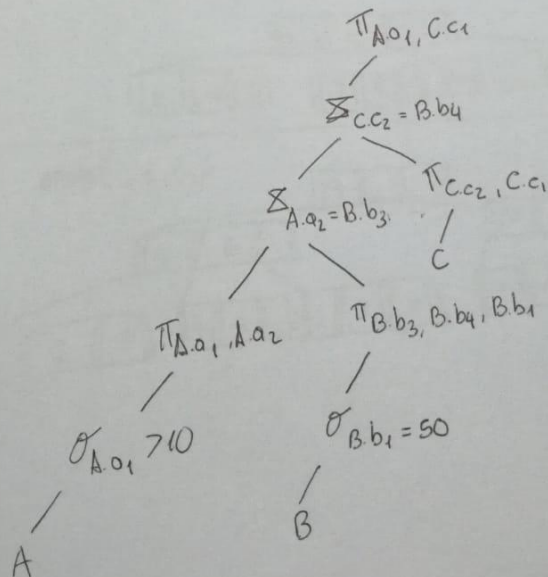 π A.a1, C.c1
⋈ C.c2 = B.b4
⋈ A.a2 = B.b3
π C.c2, C.c1
C
π A.a1, A.a2
π B.b3, B.b4, B.b1
σ A.a1 >10
σ B.b1 = 50
A
B